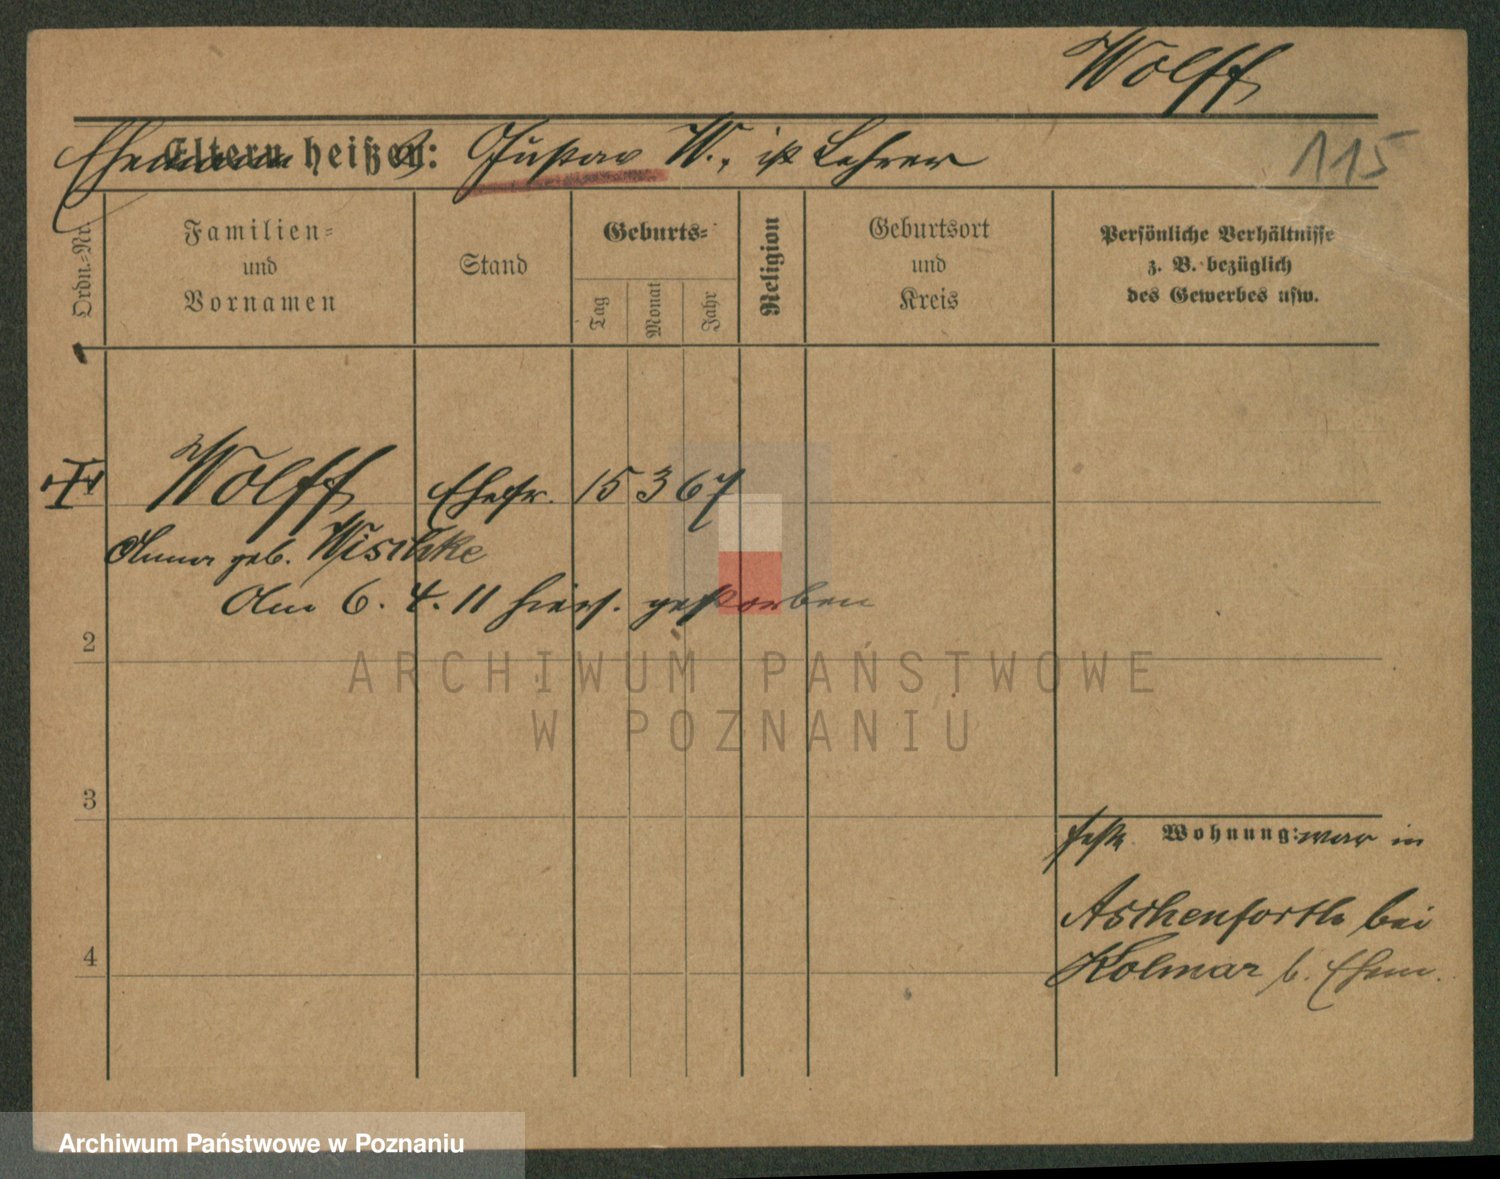 Wolff
Ehemann heißt: Gustav W., ist Lehrer
115
Ordn.-Nr.
Familien-
und
Vornamen
Stand
Geburts-
Tag
Monat
Jahr
Religion
Geburtsort
und
Kreis
Persönliche Verhältnisse
z. B. bezüglich
des Gewerbes usw.
Wolff Ehefr. 15 3 67
Anna geb. Wischke
Am 6. 4. 11 hiers. gestorben
2
3
4
Wohnung: war in
Aschenforth bei
Kolmar b. Ehem.
ARCHIWUM PAŃSTWOWE
W POZNANIU
Archiwum Państwowe w Poznaniu